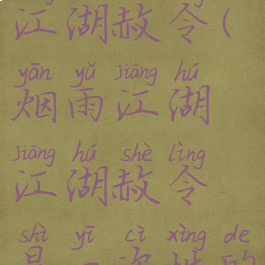 江湖赦令（
yān yǔ jiāng hú
烟雨江湖
jiāng hú shè lìng
江湖赦令
shì yī cì xìng de
是一次性的